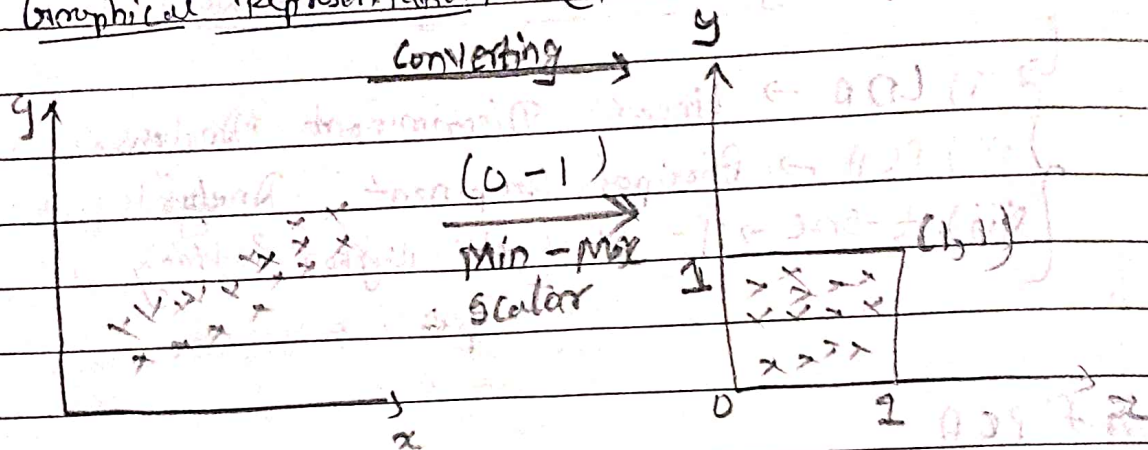 Graphical Representation
Converting
y
y
(0-1)
Min-Max
Scalar
(1,1)
1
0
1
x
x